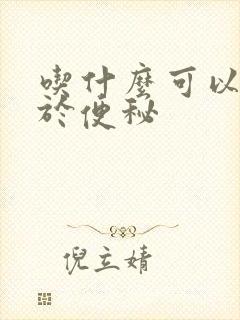 喫什麼可以
於便秘
倪立婧